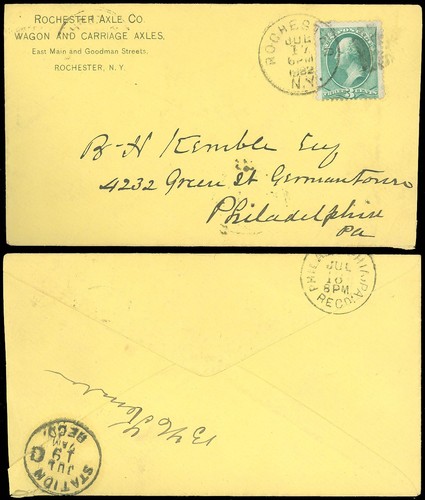 ROCHESTER AXLE CO.
WAGON AND CARRIAGE AXLES,
East Main and Goodman Streets,
ROCHESTER, N.Y.
ROCHEST
JUL
17
6PM
1882
N.Y.
U.S. POSTAGE
THREE 3 CENTS
B-H Kemble Esq
4232 Green St Germantown
Philadelphia
Pa
PHILA PHIA, PA.
JUL
18
6PM
REC'D.
STATION G
JUL
19
7AM
REC'D.